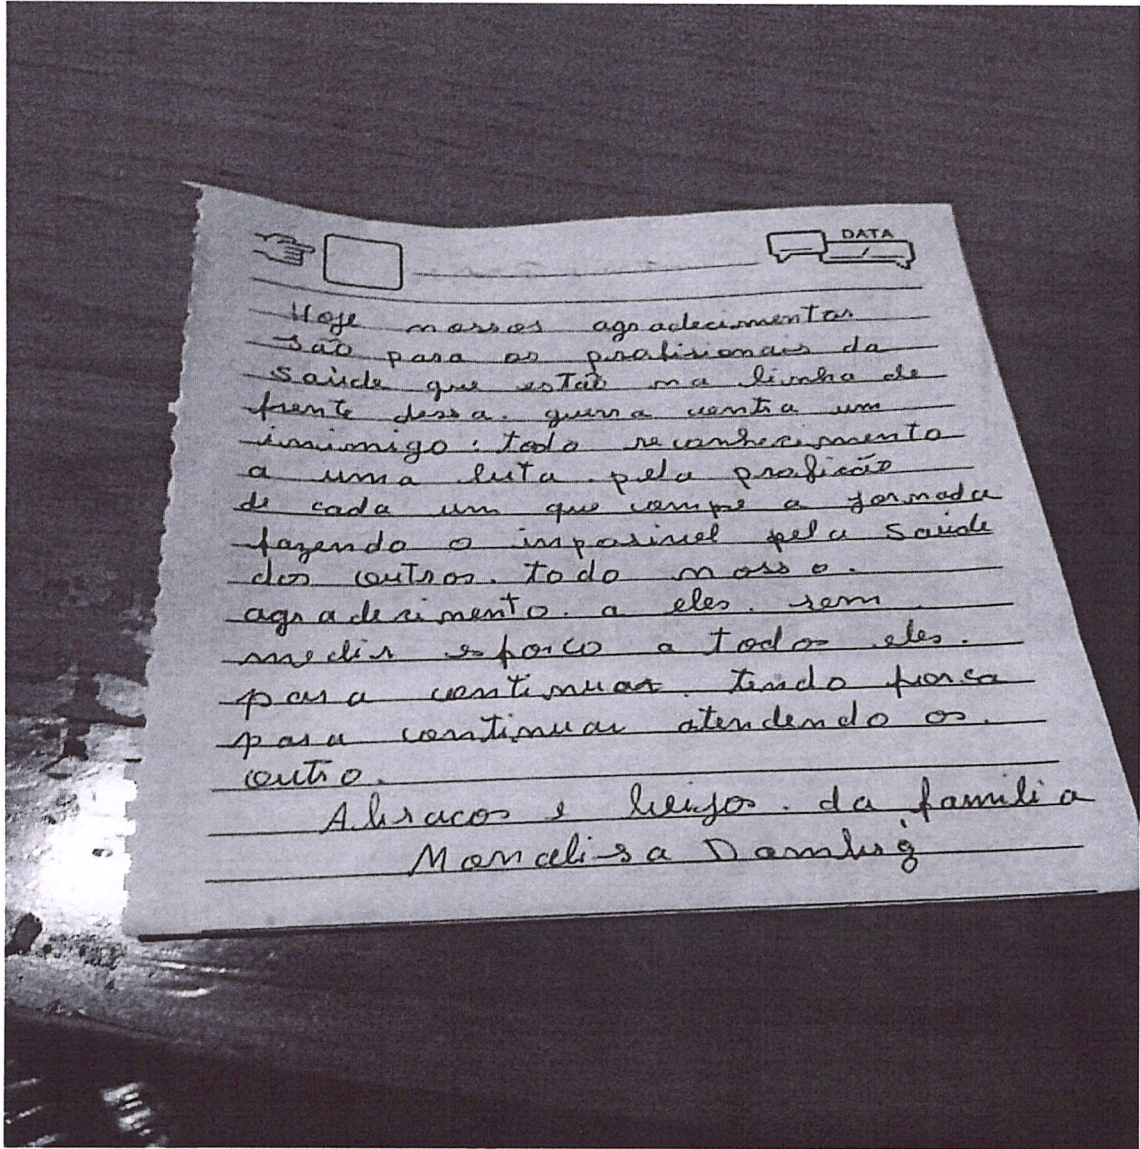 DATA
Hoje nossos agradecimentos
são para os profisionais da
Saúde que estão na linha de
frente dessa. guerra contra um
inimigo: todo reconhecimento
a uma luta. pela proficão
de cada um que compre a jornada
fazendo o imposivel pela Saúde
dos outros. todo nosso.
agradecimento. a eles. sem
medir esforco a todos eles.
para continuar. tendo força
para continuar atendendo os.
outro.
Abracos e beijos. da família
Monalisa